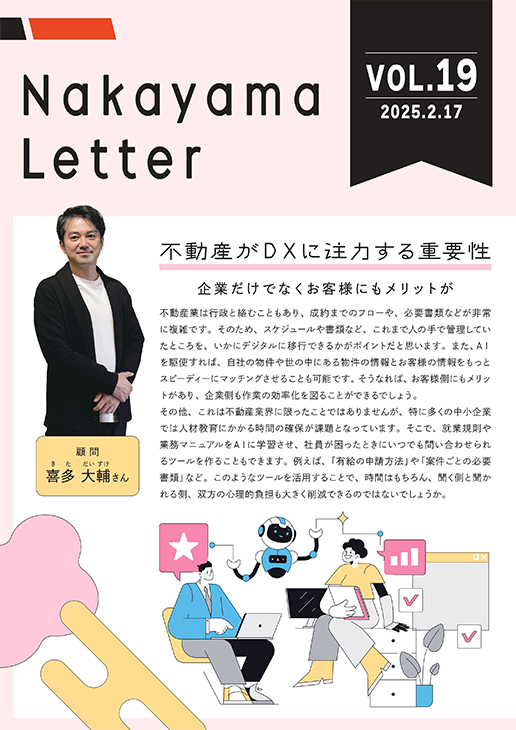 Nakayama
Letter
VOL.19
2025.2.17
不動産がDXに注力する重要性
企業だけでなくお客様にもメリットが
不動産業は行政と絡むこともあり、成約までのフローや、必要書類などが非常
に複雑です。そのため、スケジュールや書類など、これまで人の手で管理してい
たところを、いかにデジタルに移行できるかがポイントだと思います。また、AI
を駆使すれば、自社の物件や世の中にある物件の情報とお客様の情報をもっと
スピーディーにマッチングさせることも可能です。そうなれば、お客様側にもメリッ
トがあり、企業側も作業の効率化を図ることができるでしょう。
その他、これは不動産業界に限ったことではありませんが、特に多くの中小企業
では人材教育にかかる時間の確保が課題となっています。そこで、就業規則や
業務マニュアルをAIに学習させ、社員が困ったときにいつでも問い合わせられ
るツールを作ることもできます。例えば、「有給の申請方法」や「案件ごとの必要
書類」など。このようなツールを活用することで、時間はもちろん、聞く側と聞か
れる側、双方の心理的負担も大きく削減できるのではないでしょうか。
顧問
きた だいすけ
喜多 大輔さん